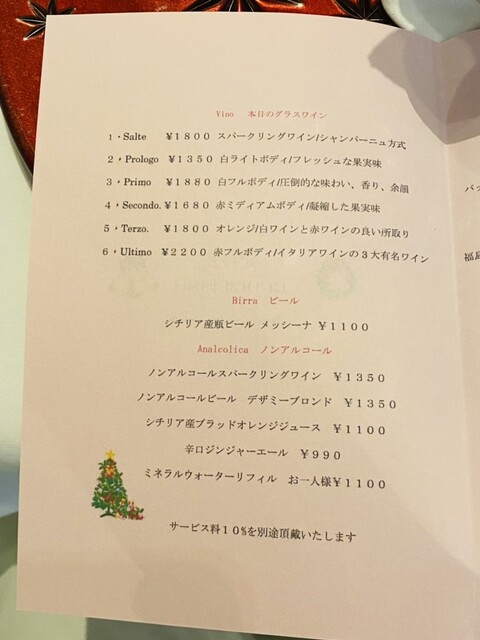 Vino 本日のグラスワイン
1・Salte ¥1800 スパークリングワイン/シャンパーニュ方式
2・Prologo ¥1350 白ライトボディ/フレッシュな果実味
3・Primo ¥1880 白フルボディ/圧倒的な味わい、香り、余韻
4・Secondo. ¥1680 赤ミディアムボディ/凝縮した果実味
5・Terzo. ¥1800 オレンジ/白ワインと赤ワインの良い所取り
6・Ultimo ¥2200 赤フルボディ/イタリアワインの3大有名ワイン
Birra ビール
シチリア産瓶ビール メッシーナ ¥1100
Analcolica ノンアルコール
ノンアルコールスパークリングワイン ¥1350
ノンアルコールビール デザミーブロンド ¥1350
シチリア産ブラッドオレンジジュース ¥1100
辛口ジンジャーエール ¥990
ミネラルウォーターリフィル お一人様¥1100
サービス料10%を別途頂戴いたします